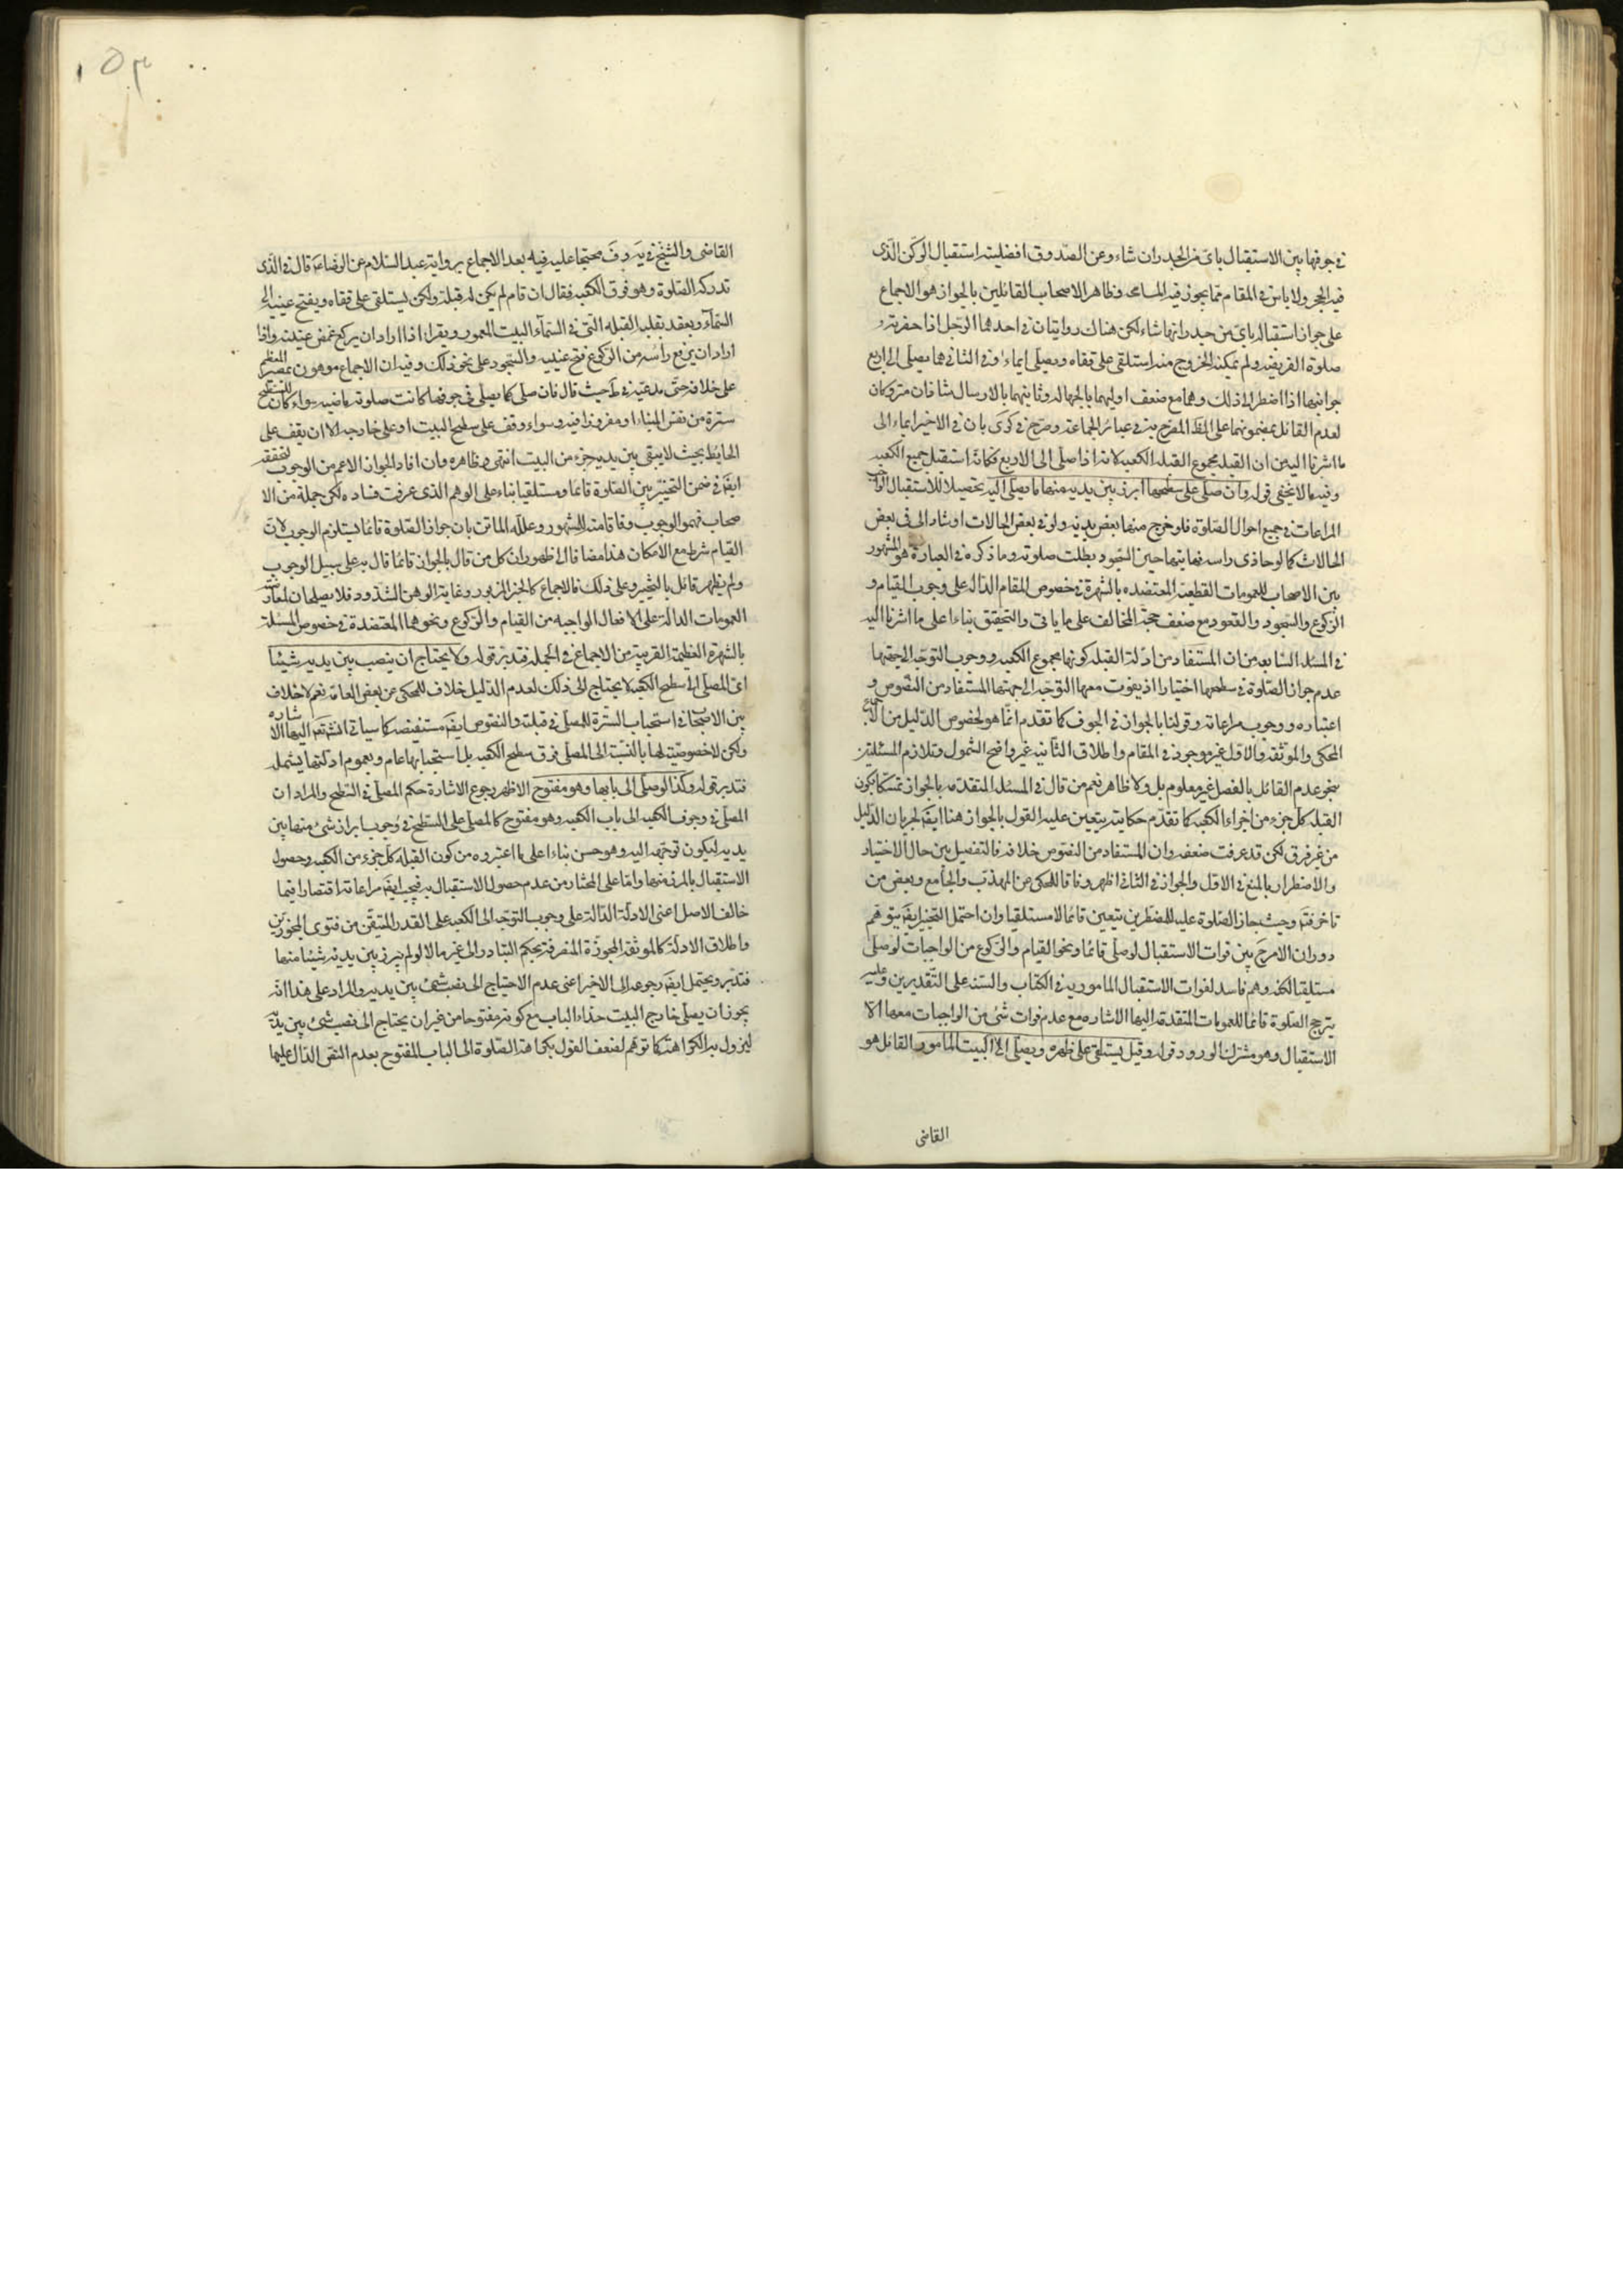 في جوفها بين الاستقبال باي من الجدران شاء وعن الصدوق افضلية استقبال الركن الذي
فيه الحجر ولا باس في المقام مما يجوز فيه المسامحه وظاهر الاصحاب القائلين بالجواز هو الاجماع
على جواز استقبال باي من جدرانها شاء لكن هناك روايتان في احدهما الرجل اذا حضرته
صلوة الفريضه ولم يمكنه الخروج منه استلقى على قفاه ويصلى ايماء وفي الثاني هما يصلى الى اربع
جوانبها اذا اضطر الى ذلك وهما مع ضعف اوليهما بالجهاله وثانيهما بالارسال شاذان متروكان
لعدم القائل بمضمونهما على الظ المصرح به في عبائر الجماعة وصرح في كرى بان في الاخير ايماء الى
ما اشرنا اليه من ان القبله مجموع القبله الكعبه لانه اذا صلى الى الاربع فكانه استقبل جميع الكعبه
وفيه ما لا يخفى قوله وان صلى على سطحها ابرز بين يديه منها ما يصلى اليه تحصيلا للاستقبال الواجب
المراعات في جميع احوال الصلوة فلو خرج منها بعض بدنه ولو في بعض الحالات او شاء الى في بعض
الحالات كما لو حاذى راسه نهايتها حين السجود بطلت صلوته وما ذكره في العبارة هو المشهور
بين الاصحاب للعمومات القطعية المعتضده بالشهرة في خصوص المقام الداله على وجوب القيام و
الركوع والسجود والقعود مع ضعف حجة المخالف على ما ياتى والتحقيق بناءا على ما اشرنا اليه
في المسئله السابعه من ان المستفاد من ادلة القبله كونها مجموع الكعبه ووجوب التوجه الى جهتها
عدم جواز الصلوة في سطحها اختيارا اذ يفوت معها التوجه الى جهتها المستفاد من النصوص و
اعتباره ووجوب مراعاته وقولنا بالجواز في الجوف كما تقدم انما هو لخصوص الدليل من الاجماع
المحكى والموثقه والاول غير موجود في المقام واطلاق الثانيه غير واضح الشمول وتلازم المسئلتين
بنحو عدم القائل بالفصل غير معلوم بل ولا ظاهر نعم من قال في المسئله المتقدمه بالجواز تمسكا بكون
القبله كل جزء من اجزاء الكعبه كما تقدم حكايته يتعين عليه القول بالجواز هنا ايضا لجريان الدليل
من غير فرق لكن قد عرفت ضعفه وان المستفاد من النصوص خلافه فالتفصيل بين حال الاختيار
والاضطرار بالمنع في الاول والجواز في الثاني اظهر وفاقا للمحكى عن المهذب والجامع وبعض من
تاخر فتد وحيث جاز الصلوة عليه للمضطرين يتعين قائما لا مستلقيا وان احتمل التخيير ايضا بتوهم
دوران الامر ح بين فوات الاستقبال لوصلى قائما ونحو القيام والركوع من الواجبات لوصلى
مستلقيا لكنه وهم فاسد لفوات الاستقبال المامور به في الكتاب والسنه على التقديرين وعليه
يترجح الصلوة قائما للعمومات المتقدمه اليها الاشاره مع عدم فوات شئ من الواجبات معها الا
الاستقبال وهو مشترك الورود قوله وقيل يستلقى على ظهره ويصلى الى البيت المامور القائل هو
القاضى
١٥٣
القاضى والشيخ في يه وف محتجا عليه فيه بعد الاجماع برواية عبد السلام عن الرضا ع قال في الذى
تدركه الصلوة وهو فوق الكعبه فقال ان قام لم يكن له قبلة ولكن يستلقى على قفاه ويفتح عينيه الى
السمآء ويعقد بقلبه القبله التى في السمآء البيت المعمور ويقرا فاذا اراد ان يركع غمض عينيه واذا
اراد ان يرفع راسه من الركوع فتح عينيه والسجود على نحو ذلك وفيه ان الاجماع موهون بمصير المعظم
على خلافه حتى مدعيه في ط حيث قال فان صلى كما يصلى في جوفها كانت صلوته ماضيه سواء كان للسطح
سترة من نفس البناء او مغروزا فيه وسواء وقف على سطح البيت او على خارجه الا ان يقف على
الحايط بحيث لا يبقى بين يديه جزء من البيت انتهى وظاهره وان افاد الجواز الاعم من الوجوب لتحققه
ايضا في ضمن التخيير بين الصلوة قائما ومستلقيا بناء على الوهم الذى عرفت فساده لكن جملة من الا
صحاب فهموا الوجوب وفاقا منه للمشهور وعلله الماتن بان جواز الصلوة قائما يستلزم الوجوب لان
القيام شرط مع الامكان هذا مضافا الى ظهور ان كل من قال بالجواز قائما قال به على سبيل الوجوب
ولم يظهر قائل بالتخيير وعلى ذلك فالاجماع كالخبر المزبور وغاية الوهن الشذوذ فلا يصلحان لمعارضة
العمومات الدالة على الافعال الواجبه من القيام والركوع ونحوهما المعتضدة في خصوص المسئلة
بالشهرة العظيمة القريبة من الاجماع في الجمله فتدبر قوله ولا يحتاج ان ينصب بين يديه شيئا
اى المصلى الى سطح الكعبه لا يحتاج الى ذلك لعدم الدليل خلاف للمحكى عن بعض العامة نعم لا خلاف
بين الاصحاب في استحباب السترة للمصلى في قبلته والنصوص ايضا مستفيضه كما سياتى انش تع اليها الاشاره
ولكن لا خصوصية لها بالنسبة الى المصلى فوق سطح الكعبه بل استحبابها عام وبعموم ادلتها يشمله
فتدبر قوله وكذا لوصلى الى بابها وهو مفتوح الاظهر رجوع الاشارة حكم المصلى في السطح والمراد ان
المصلى في جوف الكعبه الى باب الكعبه وهو مفتوح كالمصلى على السطح في وجوب ابراز شئ منها بين
يديه ليكون توجهه اليه وهو حسن بناءا على ما اعتبروه من كون القبله كل جزء من الكعبه وحصول
الاستقبال بالمرء منها واما على المختار من عدم حصول الاستقبال به فيجب ايضا مراعاته اقتصارا فيما
خالف الاصل اعنى الادلة الدالة على وجوب التوجه الى الكعبه على القدر المتيقن من فتوى المجوزين
واطلاق الادلة كالموثقه المجوزة المنصرفة بحكم التبادر الى غير ما لا لو لم يبرز بين يديه شيئا منها
فتدبر ويحتمل ايضا رجوعه الى الاخير اعنى عدم الاحتياج الى نصب شئ بين يديه والمراد على هذا انه
يجوز ان يصلى خارج البيت حذاء الباب مع كونه مفتوحا من غير ان يحتاج الى نصب شئ بين يديه
ليزول به الكراهة كما توهم لضعف القول بكراهة الصلوة الى الباب المفتوح بعدم النص الدال عليها